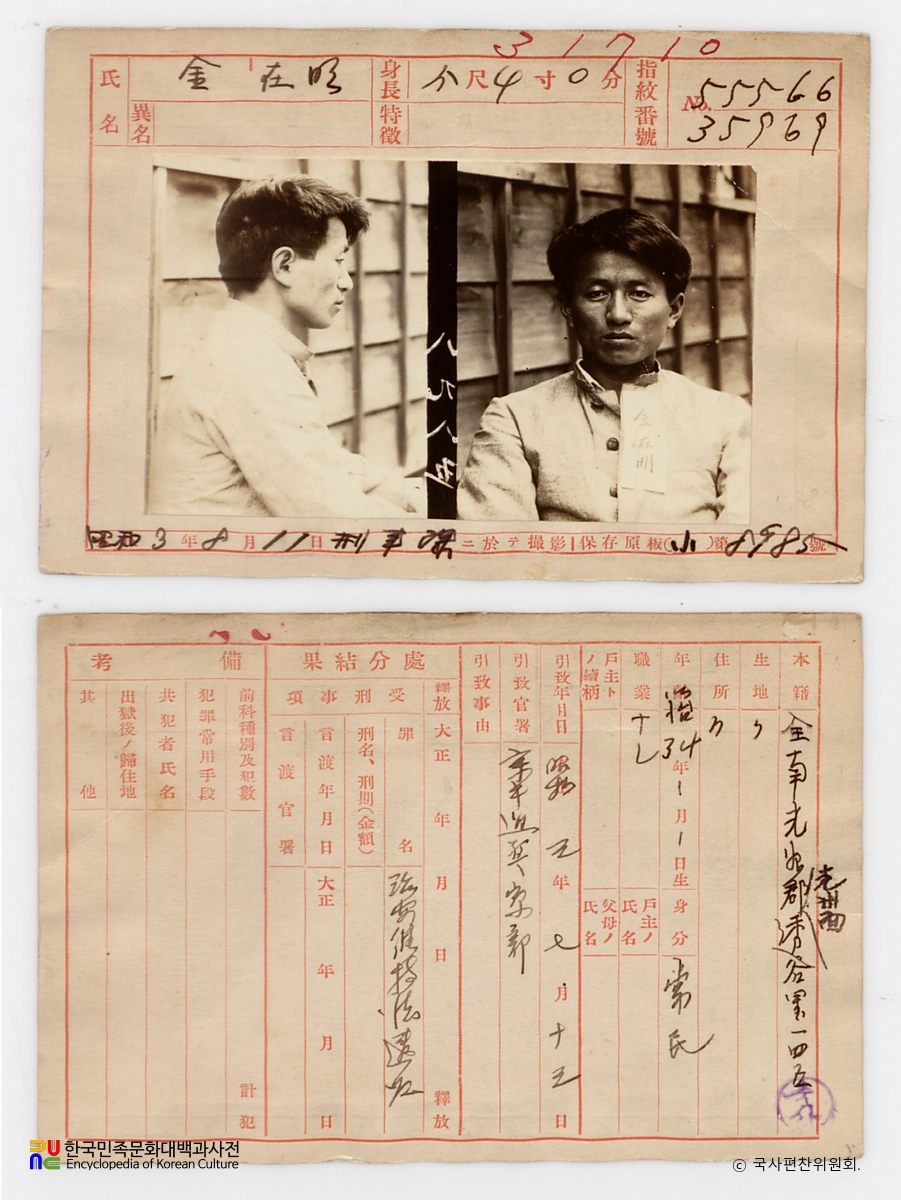 3 1 7 10
氏名 金在明
異名
身長 五尺4寸0分
特徵
指紋番號 No. 55566
35969
金在明
八九八五
昭和3年8月11日刑事課ニ於テ撮影 保存原板(小)第8985號
本籍 全南光州郡
光州面
谷里一四五
生地 〃
住所 〃
年 34年1月1日生
身分 常民
職業 ナシ
戶主ノ氏名
戶主トノ續柄
父母ノ氏名
引致年月日 昭和 五年七月十五日
引致官署
引致事由
處分結果
釋放 大正 年 月 日 釋放
受刑事項
罪名 治安維持法違反
刑名、刑期(金額)
言渡年月日 大正 年 月 日
言渡官署
備考
前科種別及犯數 計 犯
犯罪常用手段
共犯者氏名
出獄後ノ歸住地
其他
한국민족문화대백과사전
Encyclopedia of Korean Culture
© 국사편찬위원회.